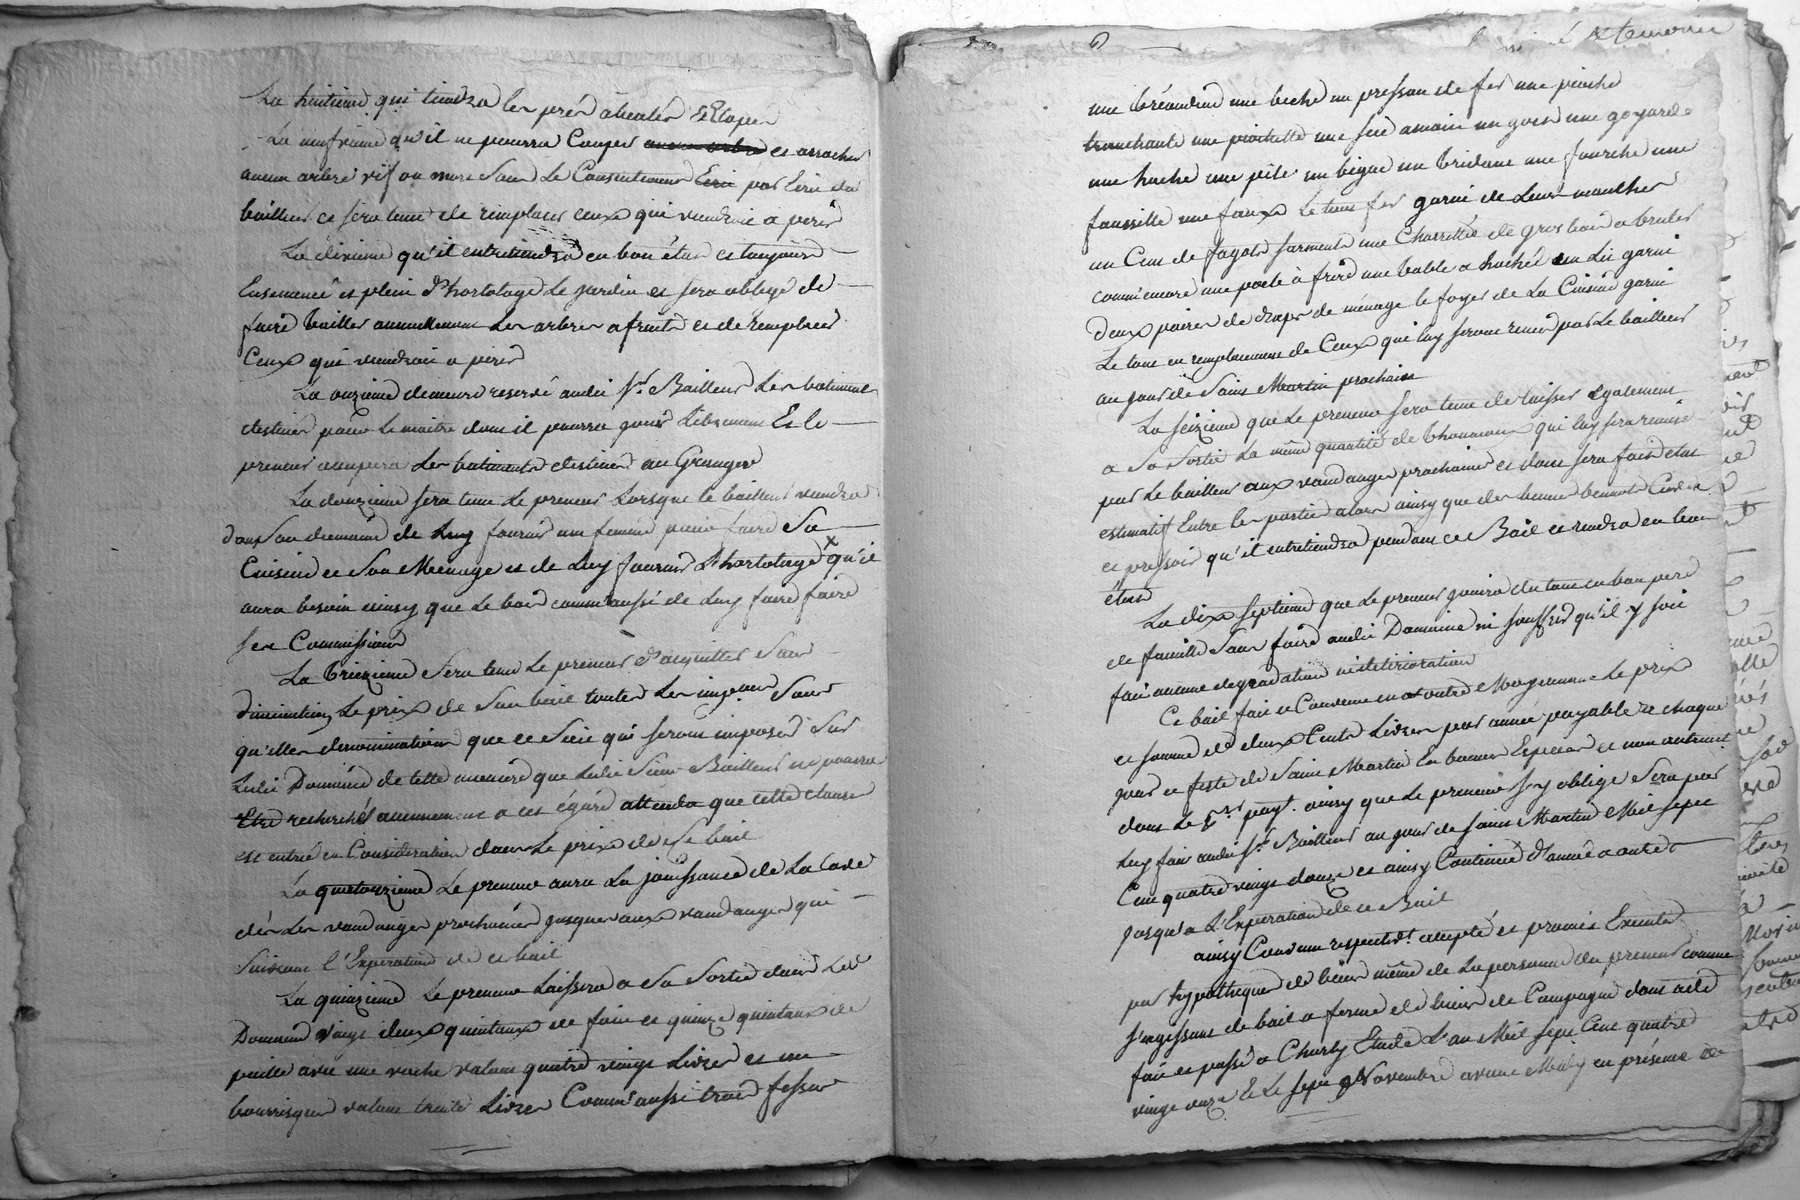 La huitieme qui tiendra les prés
La neufvieme qu'il ne pourra Couper et arracher
aucun arbre vif ou mort Sans Le Consentement par Ecrit du
bailleur et sera tenu de remplacer ceux qui viendroit a perir
La dixieme qu'il entretiendra en bon état et toujours
Ensemencé et plein d'hortolage Le jardin et sera obligé de
faire tailler annuellement Les arbres a fruits et de remplacer
Ceux qui viendroit a perir
La onzieme demeure reservé audit Sr. Bailleur Les batiments
destinés pour Le maitre dont il pourra jouir Librement Et le
preneur occupera Les batiments destinés au Granger
La douzieme sera tenu Le preneur Lorsque le bailleur viendra
dans Son domaine de Luy fournir une femme pour faire Sa
Cuisine et Son Menage et de Luy fournir L'hortolage qu'il
aura besoin ainsy que Le bois comm'aussi de Luy faire faire
ses Commissions
La treizieme Sera tenu Le preneur d'acquitter Sans
diminution Le prix de Son bail toutes Les impots Sous
qu'elles denominations que ce Soit qui seront imposés Sur
Ledit Domaine de telle maniere que Ledit Sieur Bailleur ne pourra
Etre recherché aucunement a cet égard attendu que cette clause
est entrée en Consideration dans Le prix de ce bail
La quatorzieme Le preneur aura La jouissance de La Cave
dès Les vendanges prochaines jusques aux vendanges qui
Suivront l'Expiration de ce bail
La quinzieme Le preneur Laissera a Sa Sortie dans Led
Domaine vingt deux quintaux de foin et quinze quintaux de
paille avec une vache valant quatre vingt Livres et un
bourrique valant trente Livres Comm'aussi trois
une beche un presson de fer une pioche
tranchante une piochette une scie amain un goy une goyarde
une hache une pele un bigot un tridant une fourche une
faussille une faux Le tout fer garni de Leurs manches
un Cent de fagots sarments une Charretée de gros bois a bruler
comm'encore une poele à frire une table a hacher un Lit garni
deux paires de draps de ménage le foyer de La Cuisine garni
Le tout en remplacement de Ceux qui luy seront remis par Le bailleur
au jour de Saint Martin prochain
La seizieme que Le preneur sera tenu de laisser également
a Sa Sortie La même quantité de Thonneaux qui luy sera remise
par Le bailleur aux vandanges prochaines et dont sera fait état
estimatif Entre les parties alors ainsy que des bennes Cuves
et pressoir qu'il entretiendra pendant ce Bail et rendra en bon
état
La dix septieme que Le preneur jouira du tout en bon pere
de famille Sans faire audit Domaine ni souffrir qu'il y soit
fait aucune degradation ni détérioration
Ce bail fait et Convenu en outre Moyennant Le prix
et somme de deux Cents Livres par année payable a chaque
jour et feste de Saint Martin En bonnes Especes et non autrement
dont Le 1er payt. ainsy que Le preneur s'y oblige Sera par
Luy fait audit Sr. Bailleur au jour de saint Martin Mil sept
Cent quatre vingt douze et ainsy Continué d'année a autre
jusqu'a L'Expiration de ce Bail
ainsy Convenu respectivt. accepté et promis Executer
par hypotheque de biens même de La personne du preneur comme
s'agissant de bail a ferme de biens de Campagne dont acte
fait et passé a Charly Etude L'an Mil sept Cent quatre
vingt onze Et Le sept Novembre avant Midy en présence de